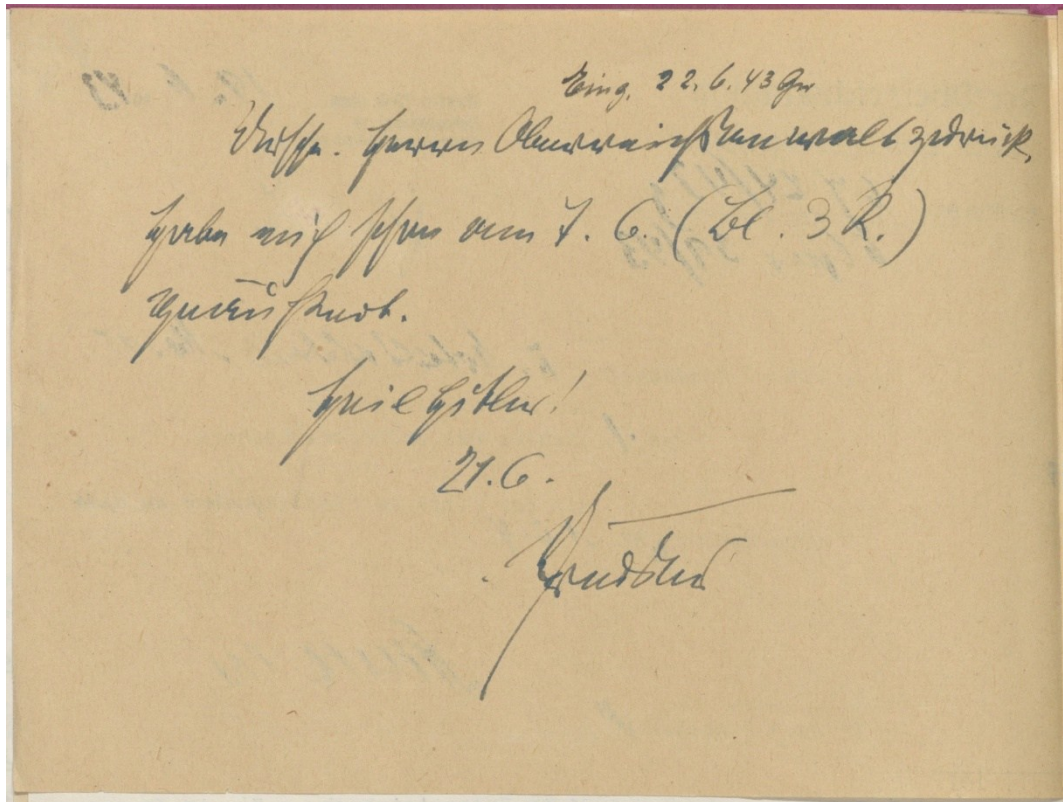 Eing. 22.6.43
Urschr. Herrn Oberreichsanwalt zurück,
habe mich schon am 7. 6. (Bl. 3 R.)
geäußert.
Heil Hitler!
21.6.